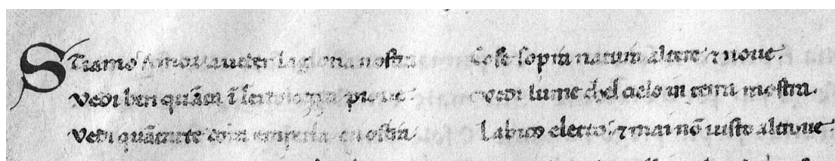 STiamo Amor aueder la gloria nostra Cose sopra natura altere ⁊ noue.
Vedi ben quāta ī lei dolceçça pioue. Vedi lume chel cielo in terra mostra.
Vedi quātarte dora emperla enostra Labito electo ⁊ mai nō uisto altroue